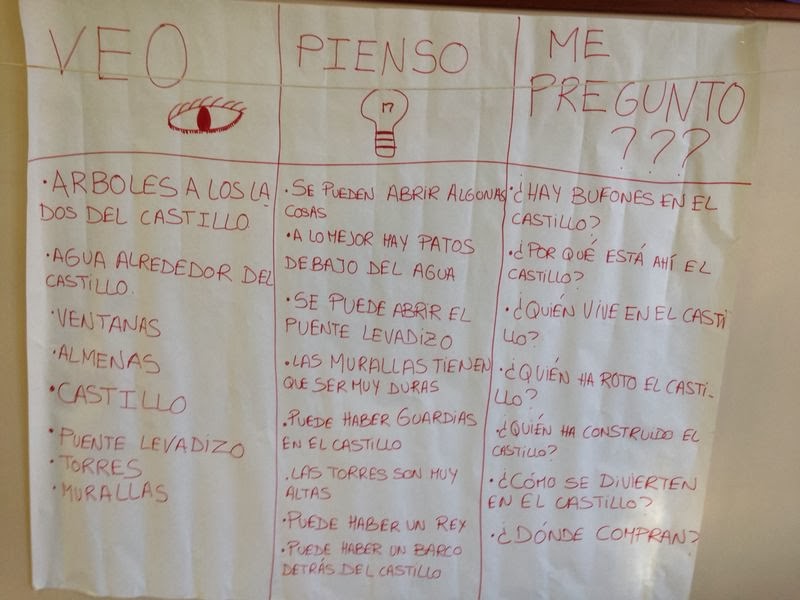 VEO
ARBOLES A LOS LA
DOS DEL CASTILLO
AGUA ALREDEDOR DEL
CASTILLO.
VENTANAS
ALMENAS
CASTILLO
PUENTE LEVADIZO
TORRES
MURALLAS
PIENSO
SE PUEDEN ABRIR ALGUNAS
COSAS
A LO MEJOR HAY PATOS
DEBAJO DEL AGUA
SE PUEDE ABRIR EL
PUENTE LEVADIZO
LAS MURALLAS TIENEN
QUE SER MUY DURAS
PUEDE HABER GUARDIAS
EN EL CASTILLO
LAS TORRES SON MUY
ALTAS
PUEDE HABER UN REY
PUEDE HABER UN BARCO
DETRÁS DEL CASTILLO
ME
PREGUNTO
???
¿HAY BUFONES EN EL
CASTILLO?
¿POR QUÉ ESTÁ AHÍ EL
CASTILLO?
¿QUIÉN VIVE EN EL CASTI
LLO?
¿QUIÉN HA ROTO EL CASTI-
LLO?
¿QUIÉN HA CONSTRUIDO EL
CASTILLO?
¿CÓMO SE DIVIERTEN
EN EL CASTILLO?
¿DÓNDE COMPRAN?